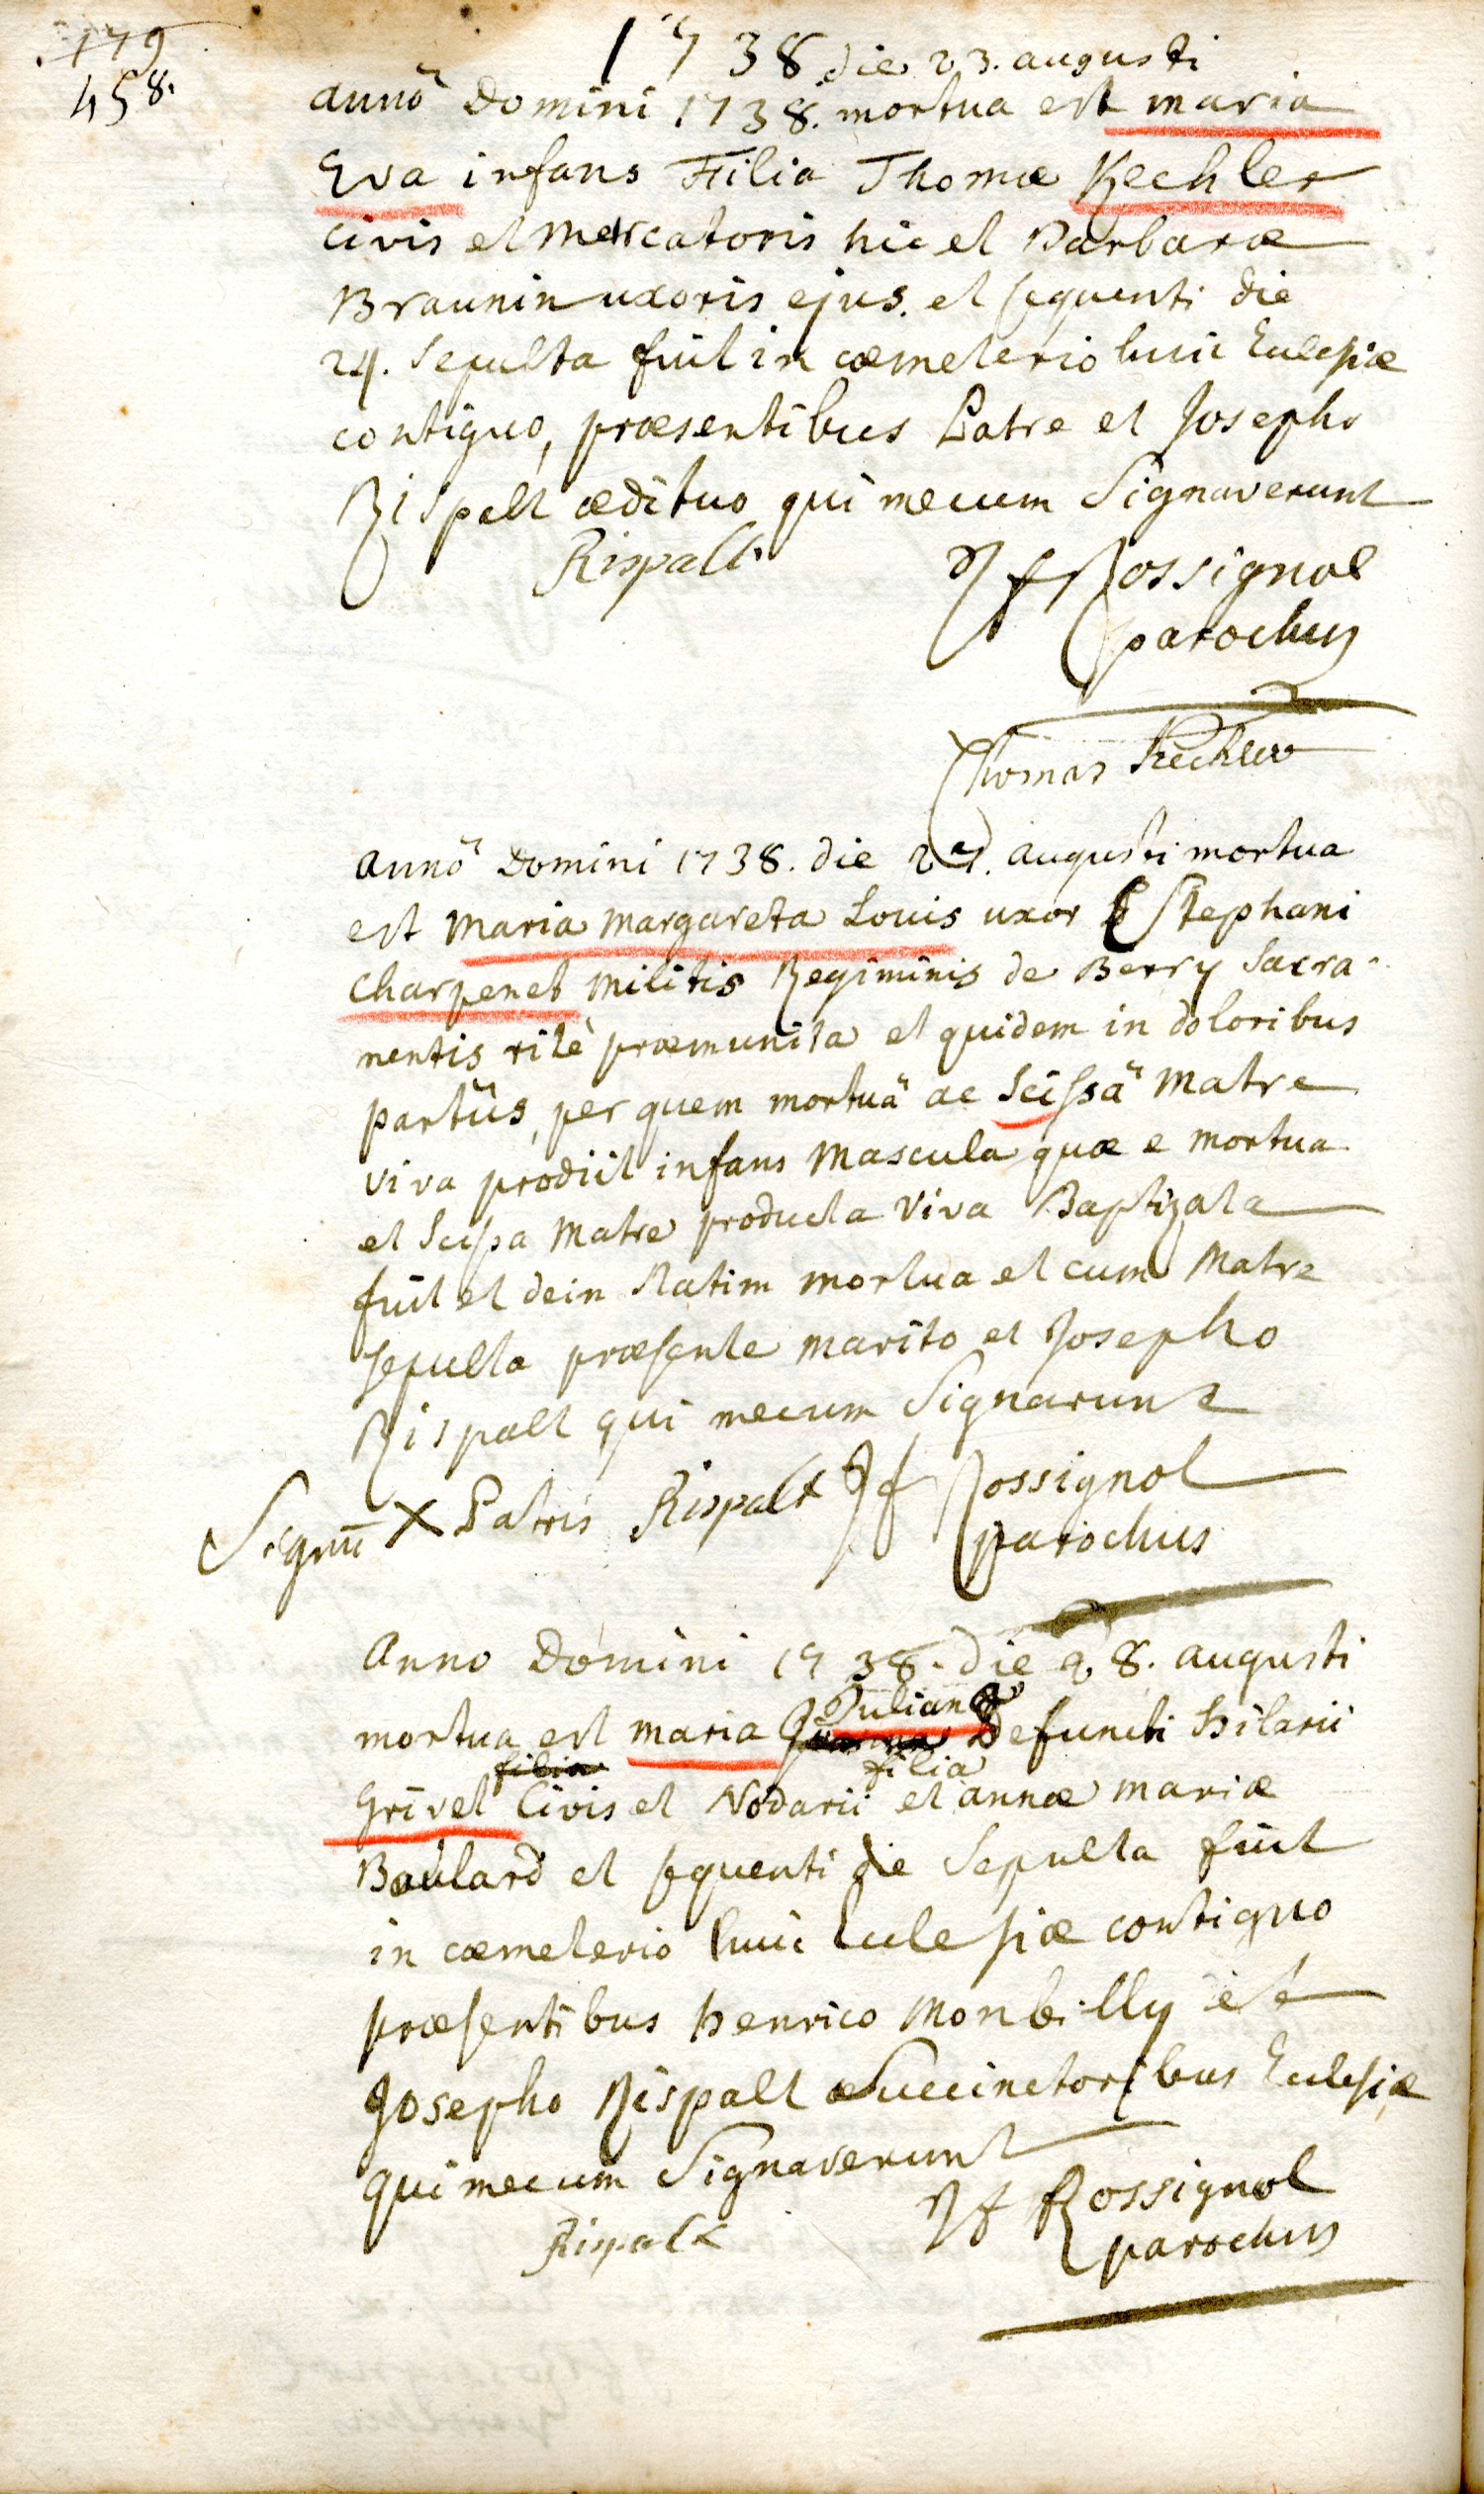 179
458.
1738 die 23. augusti
annô Domini 1738. mortua est maria
Eva infans Filia Thomæ Kechler
civis et Mercatoris hic et Barbaræ
Braunin uxoris ejus. et sequenti die
24. Sepulta fuit in cæmeterio huic Eclesiæ
contiguo, præsentibus Patre et Josepho
Rispalt ædituo qui mecum Signaverunt
Rispalt
Jf Rossignol
parochus
Thomas Kechler
annô Domini 1738. die 27. augusti mortua
est Maria Margareta Louis uxor Stephani
Charpenet Militis Regiminis de Berry Sacra-
mentis ritè præmunita et quidem in doloribus
partûs, per quem mortuâ ac Scissâ Matre
viva prodiit infans Mascula quæ e mortua
et Scissa Matre producta viva Baptizata
fuit et dein statim mortua et cum Matre
sepulta præsente marito et Josepho
Rispalt qui mecum Signarunt
Signū X Patris Rispalt Jf Rossignol
parochus
Anno Domini 1738. die 28. augusti
mortua est maria Juliana Defuncti Hilarii
filia filia
Grivel Civis et Nodarii et annæ mariæ
Boulard et sequenti die Sepulta fuit
in cæmeterio huic Eclesiæ contiguo
præsentibus Henrico Monbilly et
Josepho Rispalt Succinctoribus Eclesiæ
qui mecum Signaverunt
Rispalt
Jf Rossignol
parochus